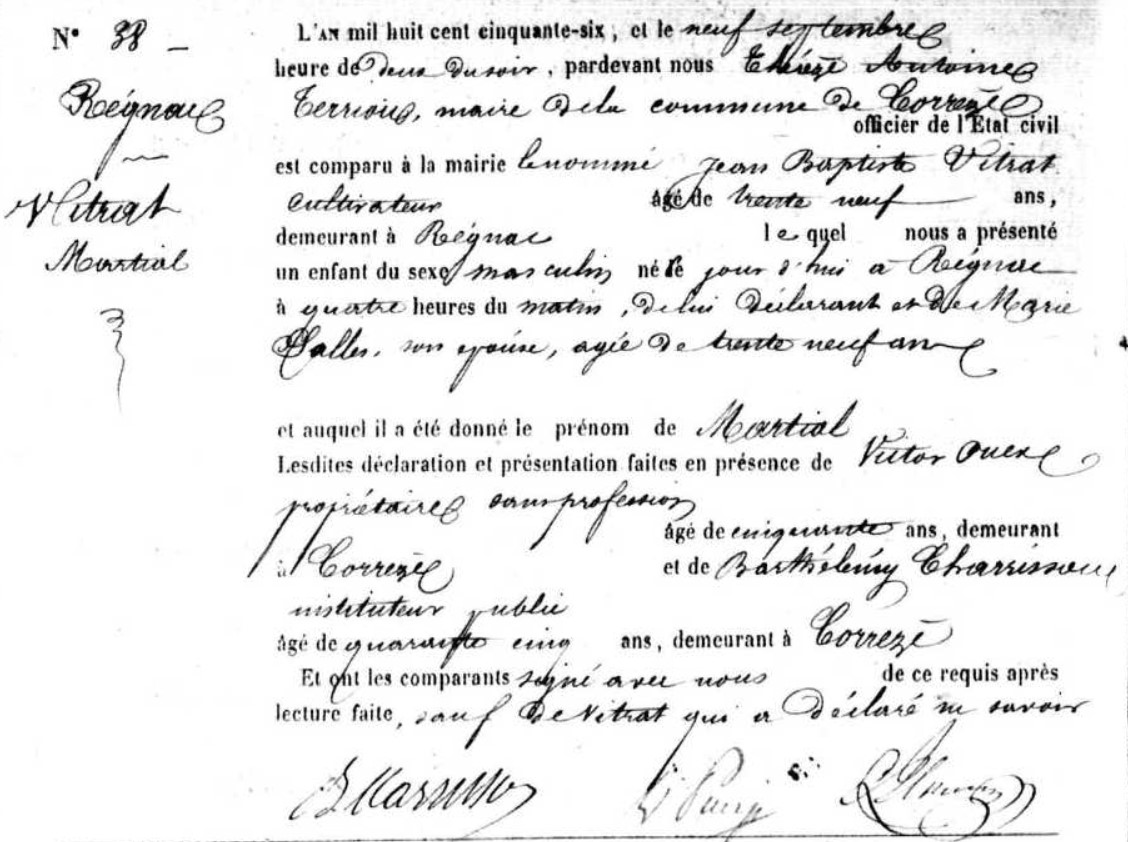 N° 38 -
Régnac
Vitrat
Martial
L'AN mil huit cent cinquante-six, et le neuf septembre
heure de deux du soir, pardevant nous Antoine
Terrioux, maire de la commune de Correze
officier de l'Etat civil
est comparu à la mairie le nommé Jean Baptiste Vitrat
cultivateur âgé de trente neuf ans,
demeurant à Régnac le quel nous a présenté
un enfant du sexe masculin né le jour d'hui à Régnac
à quatre heures du matin, de lui déclarant et de Marie
Salles, son épouse, agée de trente neuf ans
et auquel il a été donné le prénom de Martial
Lesdites déclaration et présentation faites en présence de Victor
propriétaire sans profession
âgé de cinquante ans, demeurant
à Correze et de Barthélémy
instituteur public
âgé de quarante cinq ans, demeurant à Correze
Et ont les comparants signé avec nous de ce requis après
lecture faite, sauf de Vitrat qui a déclaré ne savoir